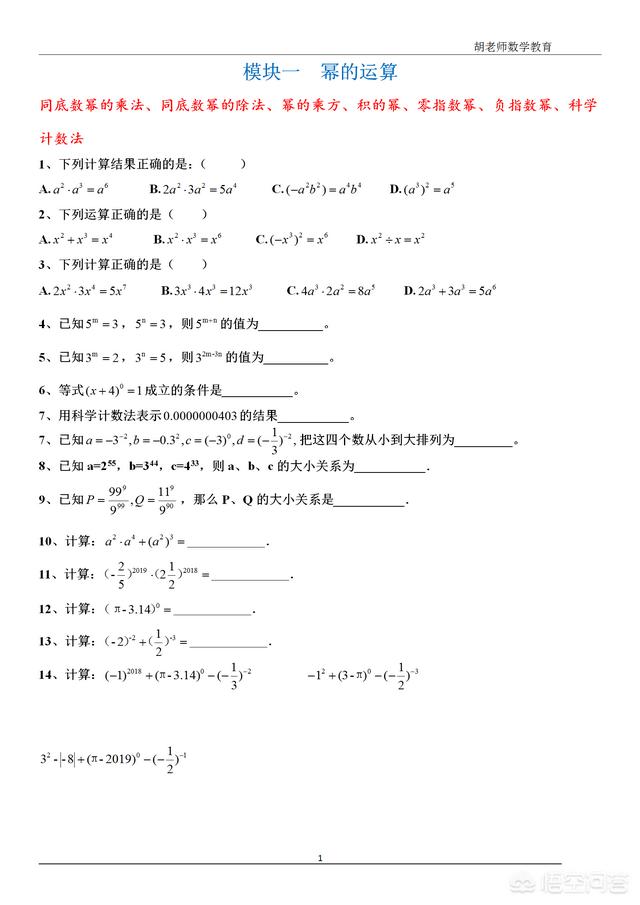 胡老师数学教育
模块一 幂的运算
同底数幂的乘法、同底数幂的除法、幂的乘方、积的幂、零指数幂、负指数幂、科学
计数法
1、下列计算结果正确的是：（ ）
A. a²·a³=a⁶ B. 2a²·3a²=5a⁴ C. (-a²b²)=a⁴b⁴ D. (a³)²=a⁵
2、下列运算正确的是（ ）
A. x²+x³=x⁴ B. x²·x³=x⁶ C. (-x³)²=x⁶ D. x²÷x=x²
3、下列计算正确的是（ ）
A. 2x²·3x⁴=5x⁷ B. 3x³·4x³=12x³ C. 4a³·2a²=8a⁵ D. 2a³+3a³=5a⁶
4、已知5ᵐ=3，5ⁿ=3，则5ᵐ⁺ⁿ的值为__________。
5、已知3ᵐ=2，3ⁿ=5，则3^(2m-3n)的值为__________。
6、等式(x+4)⁰=1成立的条件是___________。
7、用科学计数法表示0.0000000403的结果___________。
7、已知a=-3⁻²,b=-0.3²,c=(-3)⁰,d=(-1/3)⁻²,把这四个数从小到大排列为_________。
8、已知a=2⁵⁵，b=3⁴⁴，c=4³³，则a、b、c的大小关系为___________.
9、已知P=99⁹/9⁹⁹,Q=11⁹/9⁹⁰，那么P、Q的大小关系是___________.
10、计算：a²·a⁴+(a²)³=____________.
11、计算：（-2/5）²⁰¹⁹·（2 1/2）²⁰¹⁸=____________.
12、计算：（π-3.14）⁰=____________.
13、计算：（-2）⁻²+（1/2）⁻³=____________.
14、计算：(-1)²⁰¹⁸+(π-3.14)⁰-(-1/3)⁻² -1²+(3-π)⁰-(-1/2)⁻³
3²-|-8|+(π-2019)⁰-(-1/2)⁻¹
1
悟空问答